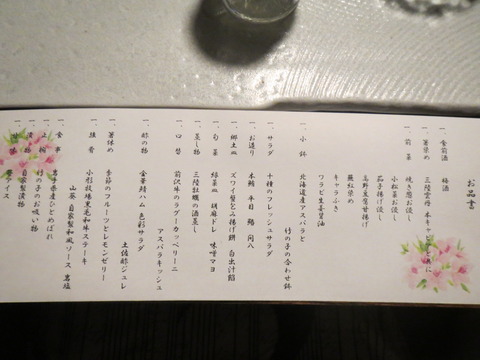 お品書
一、食前酒　梅酒
一、箸染め　三陸雲丹 本キャビアと共に
一、前菜　焼き穂お浸し
小松菜お浸し
茄子揚げ浸し
高野豆腐甘揚げ
蕪紅染め
キャラぶき
ワラビ生姜醤油
一、小鉢　北海道産アスパラと
竹の子の合わせ鉢
一、サラダ　十種のフレッシュサラダ
一、お造り　本鮪 平目 鰤 間八
一、郷土皿　ズワイ蟹とみ揚げ餅 白出汁餡
一、旬菜　緑菜皿 胡麻ドレ 味噌マヨ
一、蒸し物　三陸牡蠣の酒蒸し
一、口替　前沢牛のラグーカッペリーニ
アスパラキッシュ
一、酢の物　金華鯖ハム 色彩サラダ
土佐酢ジュレ
一、箸休め　季節のフルーツとレモンゼリー
一、強肴　小形牧場黒毛和牛ステーキ
山葵 自家製和風ソース 岩塩
一、食事　岩手県産ひとめぼれ
一、上椀　竹の子のお吸い物
一、漬物　自家製漬物
一、甘味　アイス